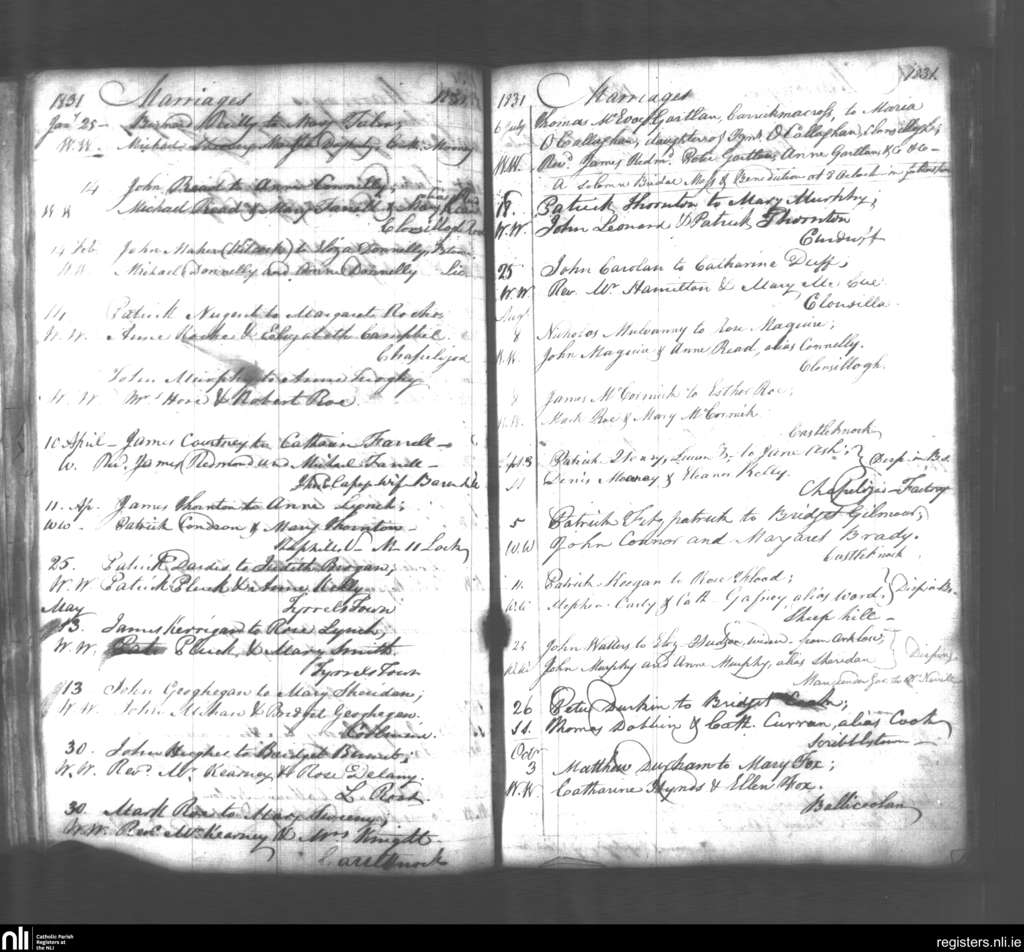 1831 Marriages 1831
Jany 25 - Bernard Reilly to Mary
W. W. Michael
14 John Read to Anne Connelly;
W W Michael Read & Mary
Clonsillagh
14 Feb John Maher to Eliza Donnelly,
W. W. Michael Donnelly and Anne Donnelly Lic
14 Patrick Nugent to Margaret Roche
W. W. Anne Roche & Elizabeth Campbel.
Chapelizod
John Murphy to Anne
W. W Mrs Hore & Robert Roe
10 April - James Courtney to Catharin Farrell -
W. Revd. James Redmond and Michael Farrell -
11. Ap. James Thornton to Anne Lynch;
WW - Patrick Condron & Mary Thornton -
M 11 Lock
25. Patrick Dardis to Judith Brogan;
W. W Patrick Pluck & Anne Kelly
Tyrrels Town
May
13. James Kerrigan to Rose Lynch,
W. W. Pluck & Mary Smith.
Tyrrels Town
13 John Geoghegan to Mary Sheridan;
W W John & Bridget Geoghegan.
30. John Hughes to Bridget
W. W. Revd. Mr Kearney & Rose Delany.
30 Mark Roe to Mary Sweeny;
W. W. Revd. Mr Kearney & Mrs Knight
Castleknock
1831 Marriages 1831.
6 July Thomas McEvoy Gartlan, Carrickmacross, to Maria
O'Callaghan, daughter of O'Callaghan, Clonsillagh;
W.W. Revd. James Redmd. Peter Gartlan, Anne Gartlan, &c &c -
A solemn Bridal Mass & Benediction at 8 oClock in
18. Patrick Thornton to Mary Murphy;
W. W. John Leonard & Patrick Thornton
25 John Carolan to Catharine Duff;
W. W. Rev. Mr Hamilton & Mary Mc Cue
Clonsilla
Augt
8 Nicholas Mulvanny to Rose Maguire;
W. W. John Maguire & Anne Read, alias Connelly.
Clonsillagh.
8 James McCormick to Esther Roe;
W. W. Mark Roe & Mary McCormick
Castleknock
Patrick Henry, to Jane Ash; Disp. in
Denis Mooney & Eleanor Kelly
Chapelizod - Factory
5 Patrick Fitzpatrick to Bridget Gilmour;
W. W John Connor and Margaret Brady.
Castleknock
11. Patrick Keegan to Rose Flood;
W. W. Stephen Early & Cath. Gafney alias Ward;
Sheep hill -
25 John Walters to Eliz Hudson, widow from Arklow;
W. W. John Murphy and Anne Murphy, alias Sheridan
26 Peter Durkin to Bridget Cook;
Thomas Dobbin & Cath. Curran, alias Cook
Scribblestown -
Octr
3 Matthew to Mary Fox;
W. W Catharine Hynds & Ellen Fox.
nli
Catholic Parish
Registers at
the NLI
registers.nli.ie